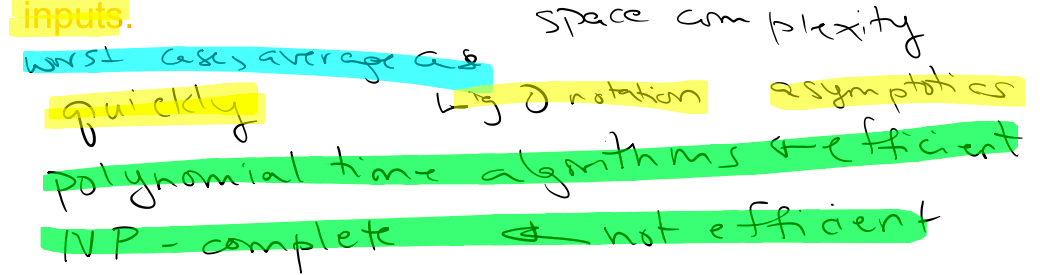 inputs.
space complexity
worst case, average case
quickly big O notation asymptotics
polynomial time algorithms ← efficient
NP-complete ← not efficient